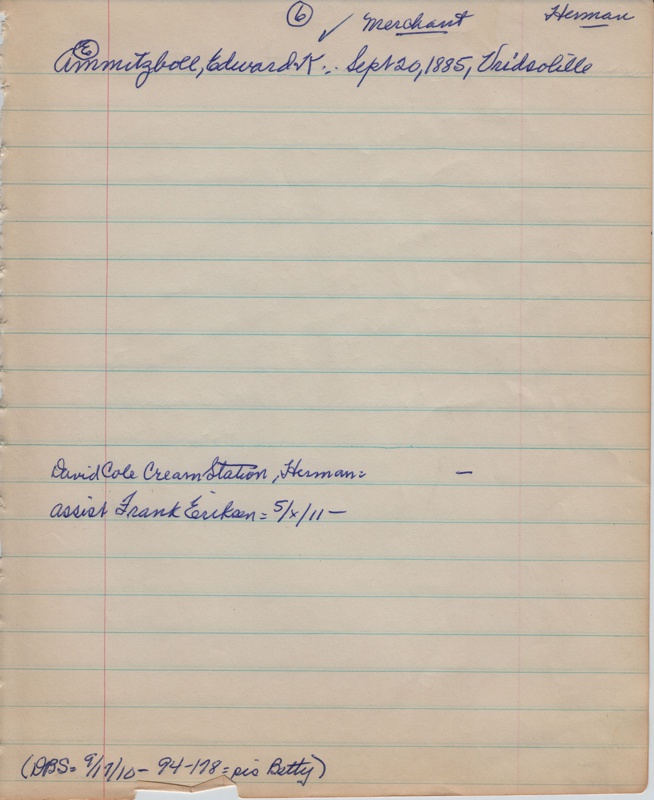 6 ✓ Merchant Herman
E
Ammitzboll, Edward K... Sept 20, 1885, Vridsolille
David Cole Cream Station, Herman= —
assist Frank Eriksen= 5/x/11—
(DBS= 9/17/10— 94-178= sis Betty)